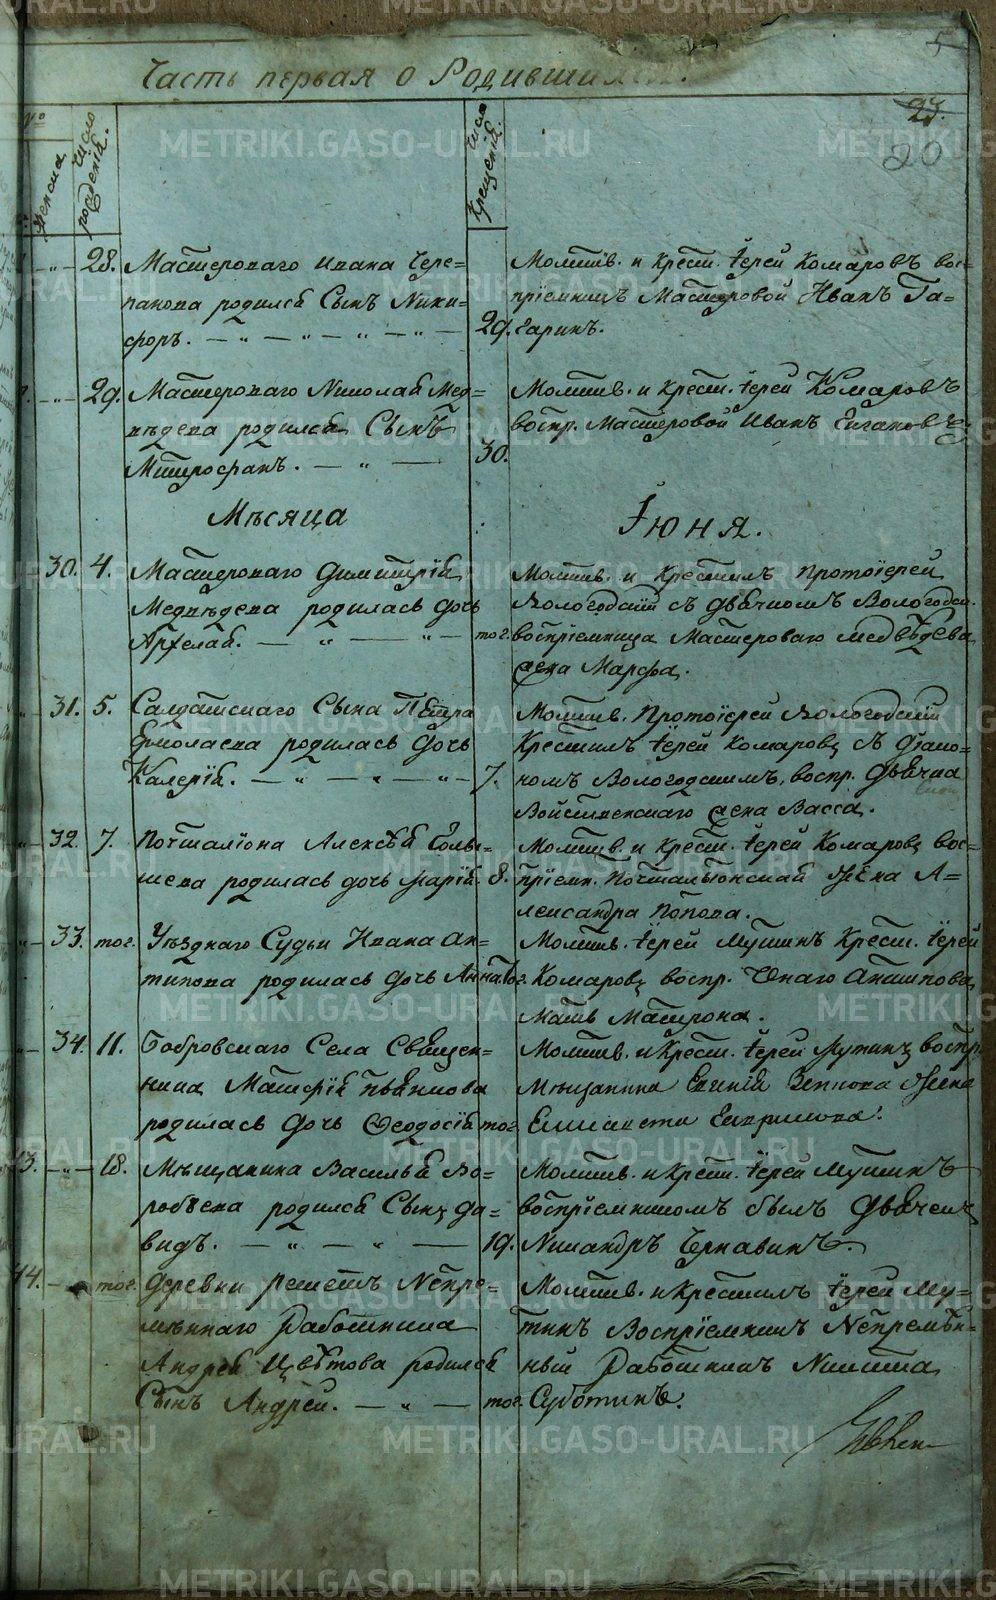 METRIKI.GASO-URAL.RU
5
Часть первая о Родившихся.
№
23.
20
женска
Число рожденiй.
Число Крещенiй.
28. Мастероваго Ивана Чере=
панова родился Сынъ Ники=
форъ. 29.
Молитв. и крест. Iерей Комаровъ вос=
прiемникъ Мастеровой Иванъ Га=
гаринъ.
29. Мастероваго Николая Мед=
вѣдева родился Сынъ
Митрофанъ. 30.
Молитв. и крест. Iерей Комаровъ
воспр. Мастеровой Иванъ
Мѣсяца Iюня.
30. 4. Мастероваго Димитрiя
Медвѣдева родилась дочь
тог.
Молитв. и Крестилъ Протоiерей
Вологодскiй съ дьячкомъ Вологодск.
воспрiемница Мастероваго Медвѣдева
жена Марфа.
31. 5. Салдатскаго Сына Петра
Ермолаева родилась дочь
Калерiя. 7.
Молитв. Протоiерей Вологодскiй
Крестилъ Iерей Комаровъ съ дiако=
номъ Вологодскимъ, воспр. дьячка
жена Васса.
32. 7. Почталiона Алексѣя
шева родилась дочь Марiя. 8.
Молитв. и крест. Iерей Комаровъ вос=
прiемн. Почталiонская жена А=
лександра Попова.
33. тог. Уѣзднаго Судьи Ивана Ан=
типова родилась дочь Анна. тог.
Молитв. Iерей Мутинъ Крест. Iерей
Комаровъ воспр. Онаго Антипова
мать Матрона.
34. 11. Бобровскаго Села Священ=
ника
родилась дочь Ѳеодосiя тог.
Молитв. и Крест. Iерей Мутинъ воспр.
Мѣщанина жена
Елисавета
13. 18. Мѣщанина Василья Во=
робьева родился Сынъ Да=
видъ. 19.
Молитв. и Крест. Iерей Мутинъ
воспрiемникомъ былъ Дьячекъ
Никандръ Чернавинъ.
14. тог. деревни Решетъ Непре=
мѣннаго Работника
Андрея Цвѣтова родился
Сынъ Андрей. тог.
Молитв. и Крестилъ Iерей Му=
тинъ Воспрiемникъ Непремѣн=
ный Работникъ Никита
Суботинъ.